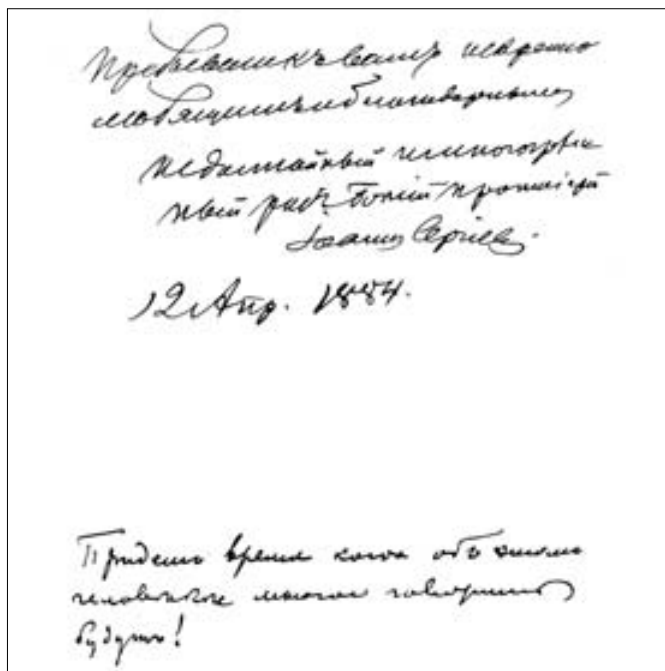 Пребываю къ вамъ искренно
недостойный и многогрѣш
ный рабъ Божій протоіерей
Іоаннъ Сергіев.
12 Апр. 1884.
Придетъ время когда объ этомъ
человѣкѣ многое говорить
будутъ!